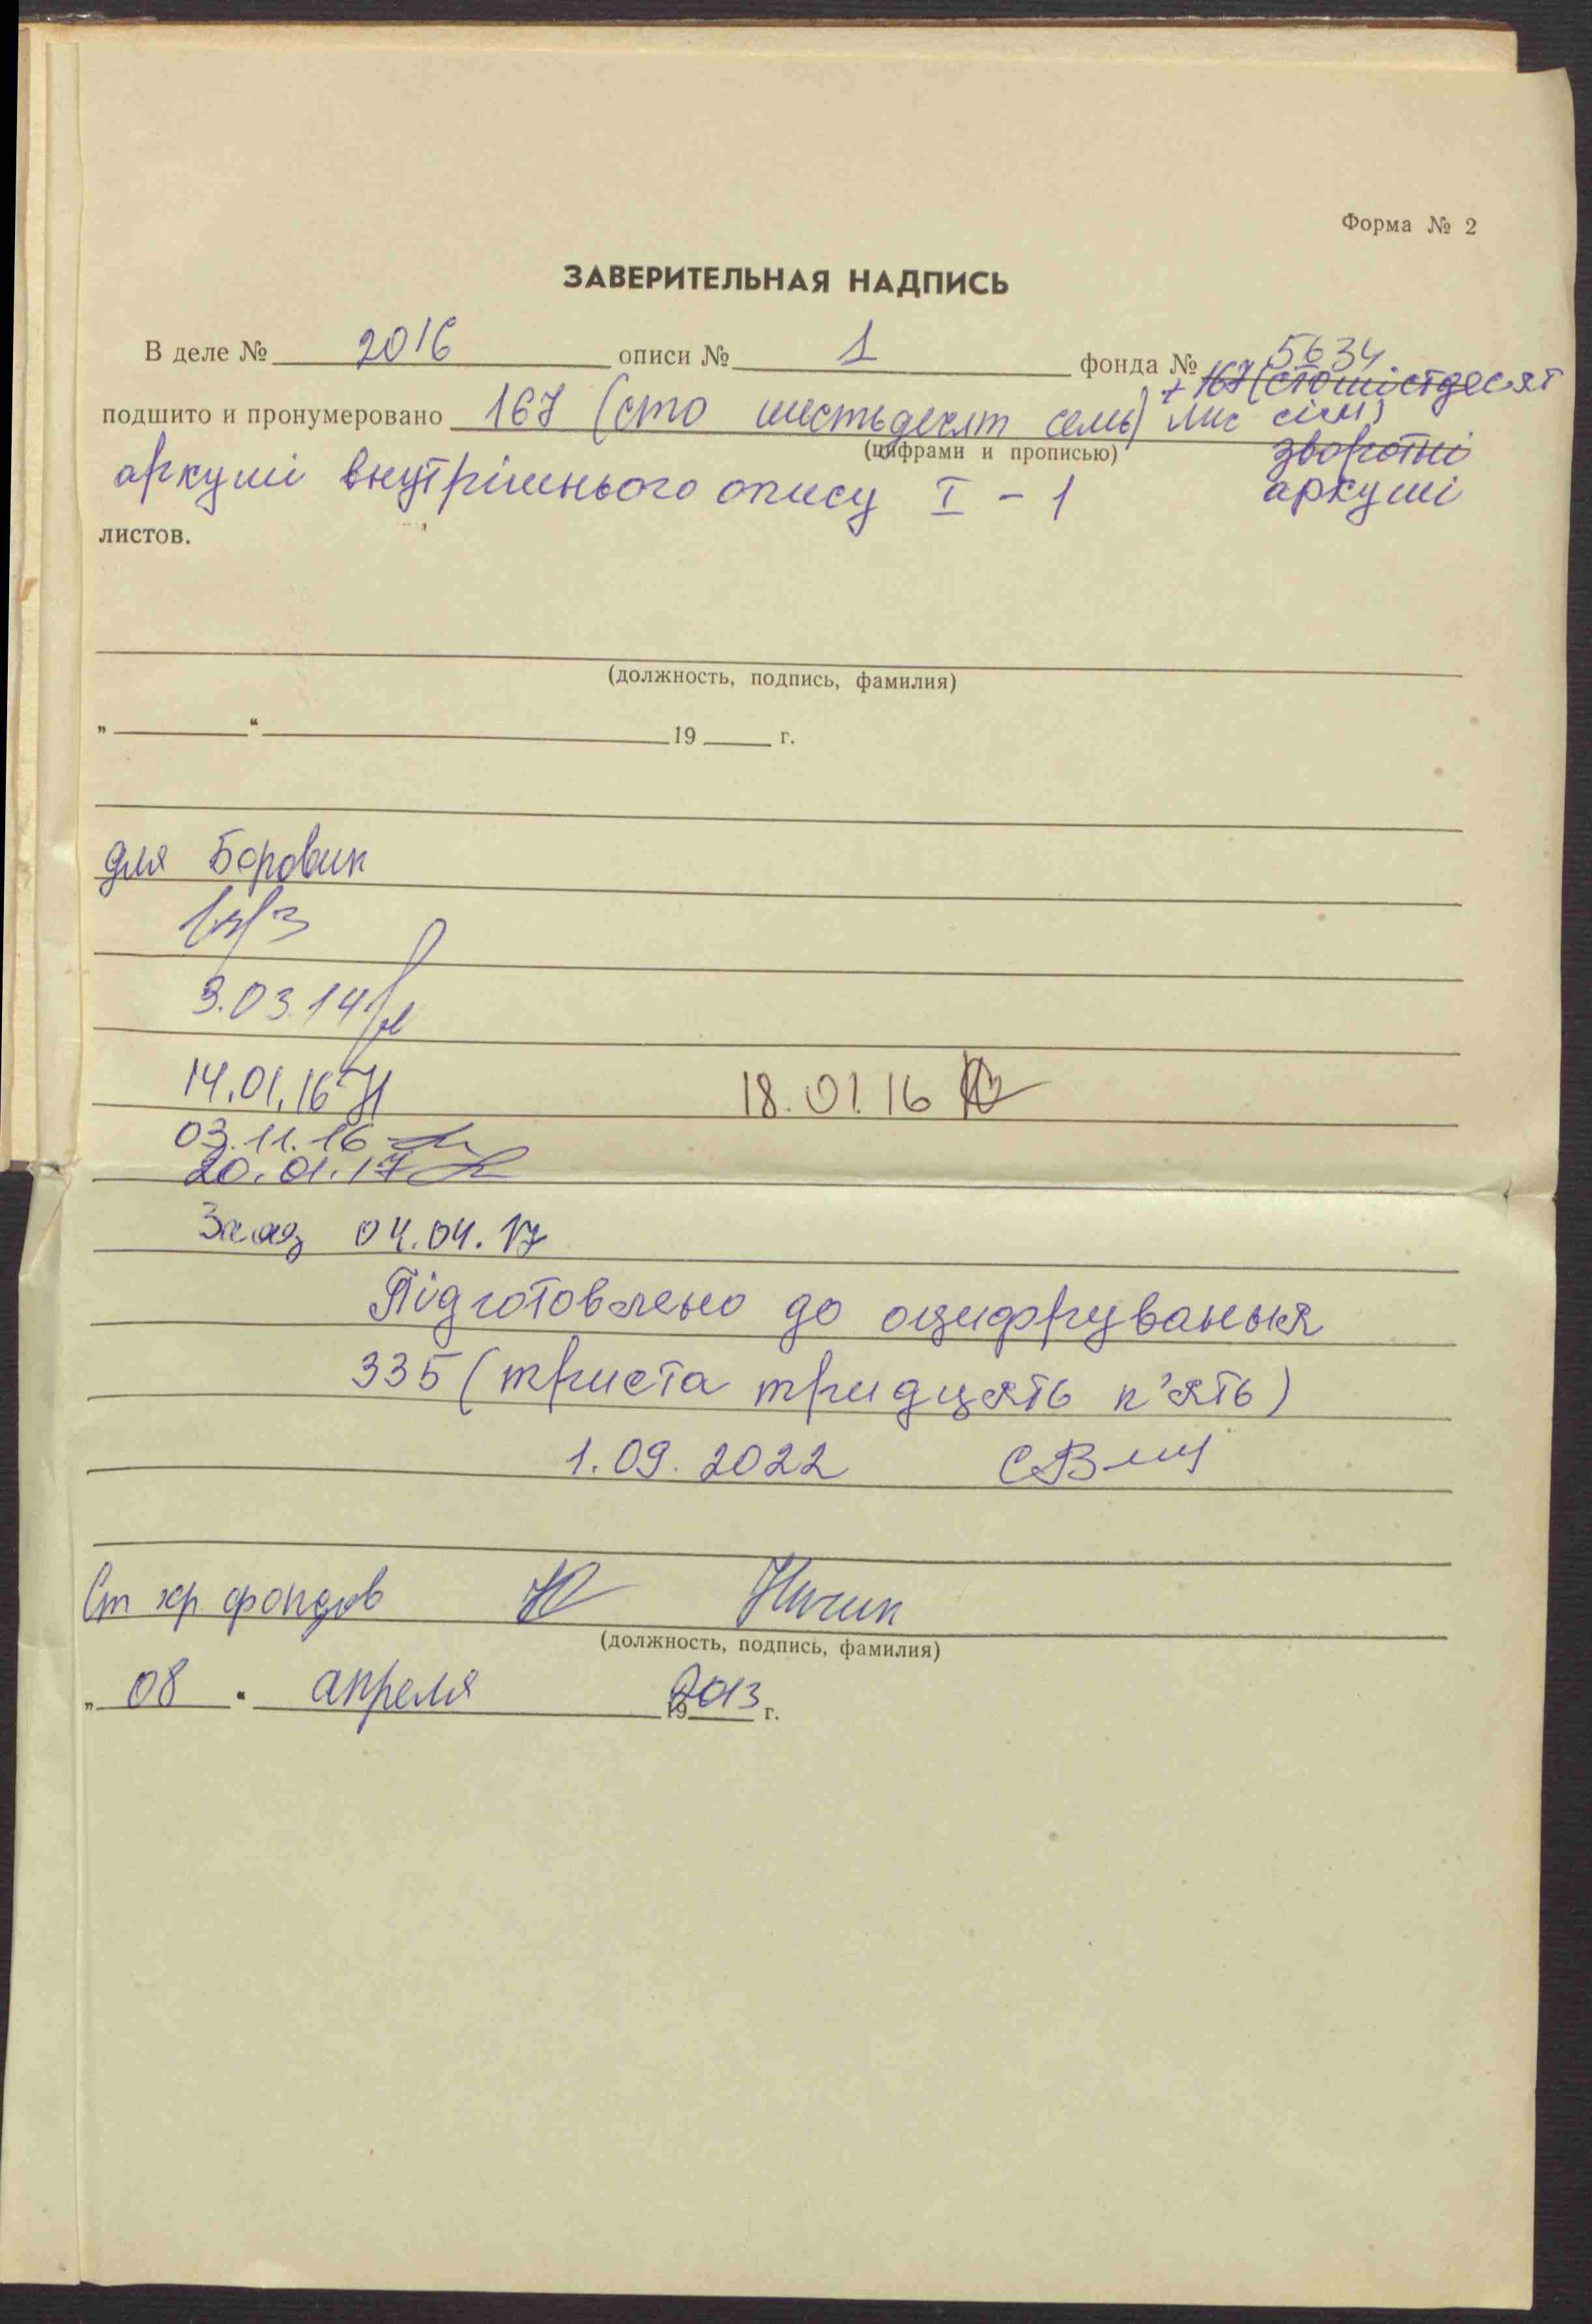 Форма № 2
ЗАВЕРИТЕЛЬНАЯ НАДПИСЬ
В деле № 2016 описи № 1 фонда № 5634
+ 167 (сто шістдесят
подшито и пронумеровано 167 (сто шестьдесят семь) лис сім)
(цифрами и прописью) зворотні
аркуші внутрішнього опису I - 1 аркуші
листов.
(должность, подпись, фамилия)
„ “ 19 г.
для Боровик
3.03.14
14.01.16 18.01.16
03.11.16
20.01.17
04.04.17
Підготовлено до оцифрування
335 (триста тридцять п'ять)
1.09.2022
Ст хр. фондов Ничик
(должность, подпись, фамилия)
„ 08 “ апреля 2013 г.